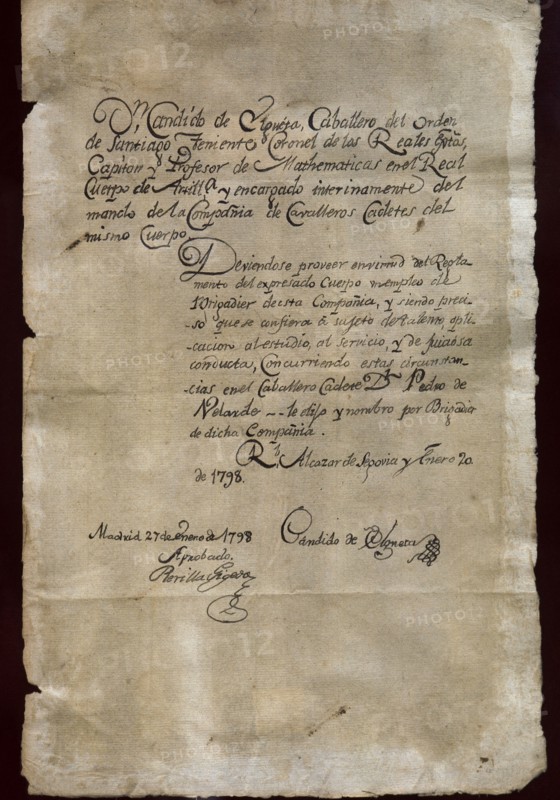 Dn. Candido de Elgueta, Caballero del Orden
de Santiago Teniente Coronel de los Reales Extos,
Capitan y Profesor de Mathematicas en el Real
Cuerpo de Artillª y encargado interinamente del
mando de la Compañia de Cavalleros Cadetes del
mismo Cuerpo
Deviendose proveer en virtud del Regla-
mento del expresado Cuerpo un empleo de
Brigadier de esta Compañia, y siendo preci-
so que se confiera á sujeto de talento, apli-
-cacion al estudio, al servicio, y de juiciosa
conducta, Concurriendo estas circunstan-
-cias en el Caballero Cadete Dn. Pedro de
Velarde -- le elijo y nombro por Brigadier
de dicha Compañia.
Rl. Alcazar de Segovia y Enero 20
de 1798.
Madrid 27 de Enero de 1798
Candido de Elgueta
Aprobado.
PHOTO12